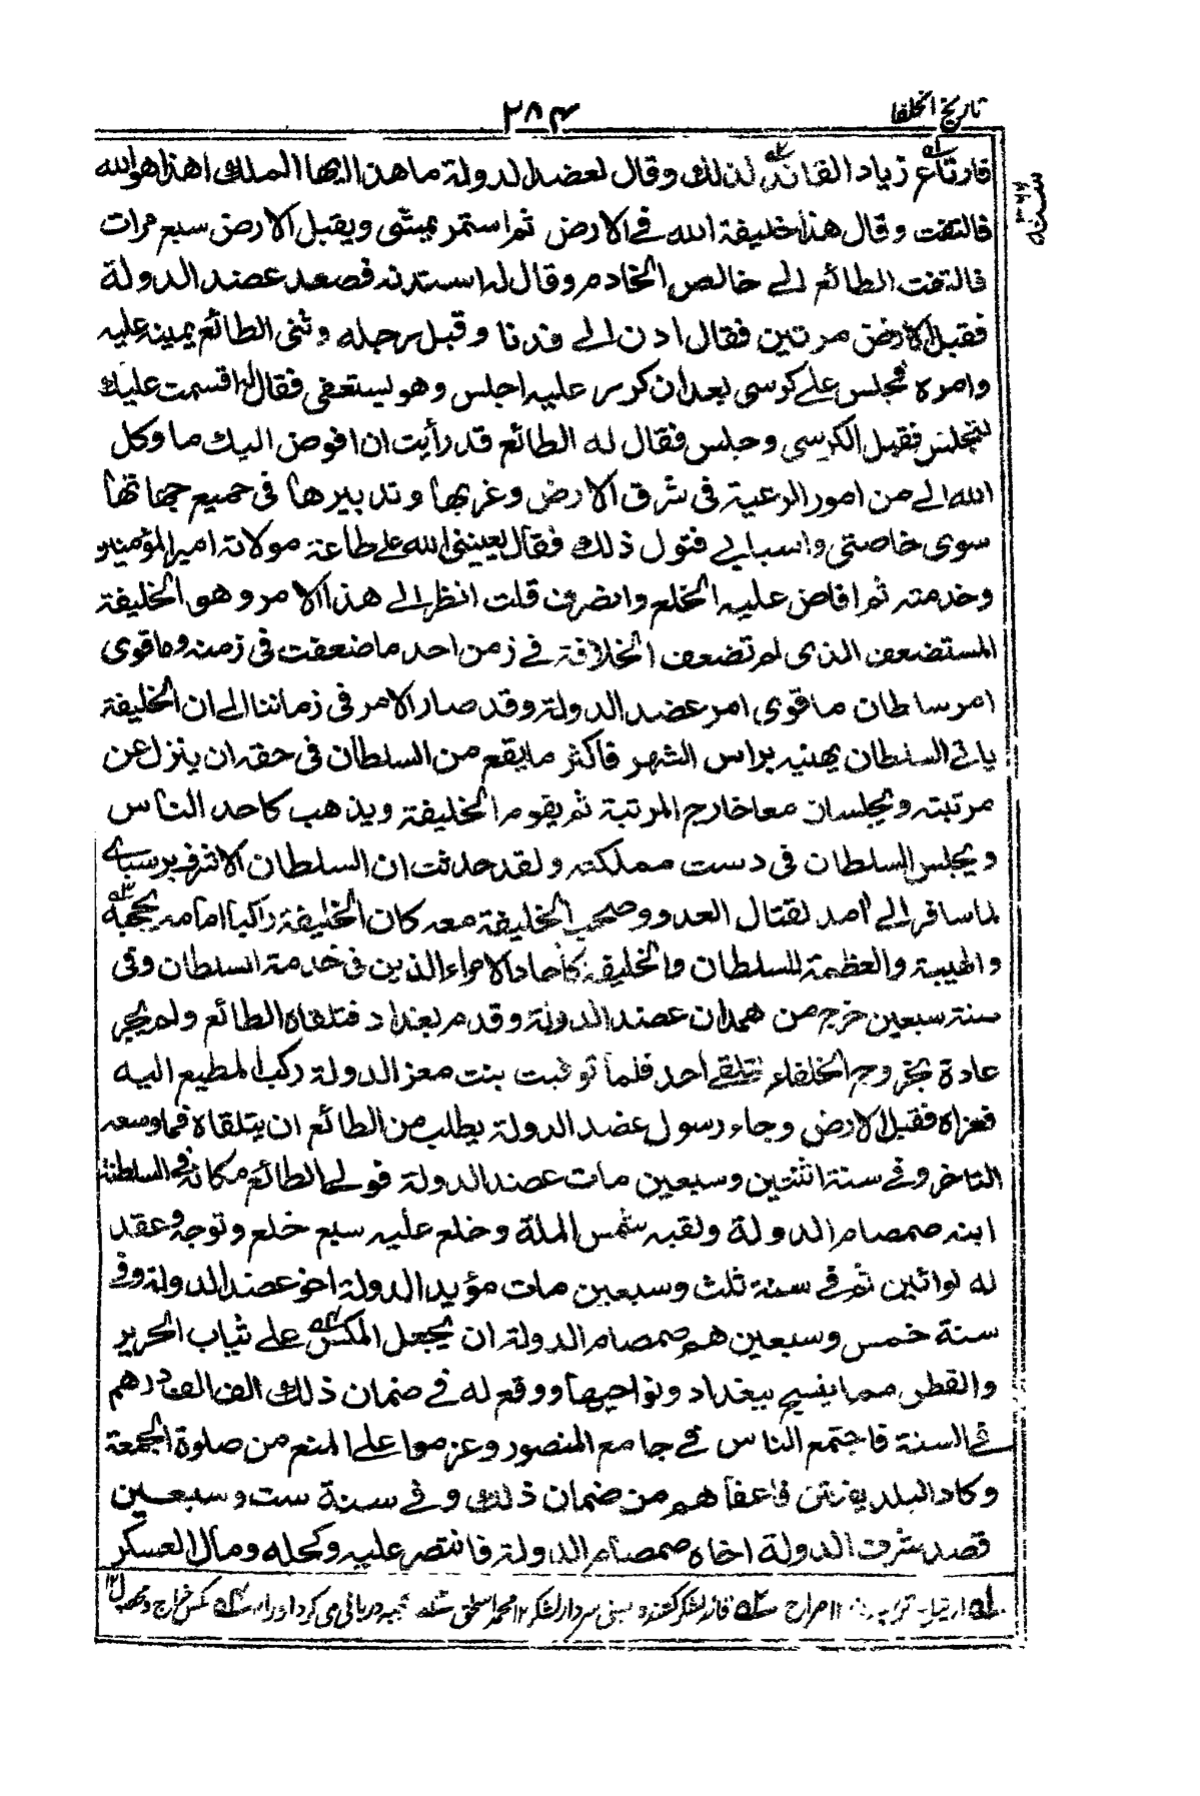 تاريخ الخلفا
٢٨٤
فارتاع زياد القائد لذلك وقال لعضد الدولة ما هذا ايها الملك اهذا هو الله
فالتفت وقال هذا خليفة الله في الارض ثم استمر يمشى ويقبل الارض سبع مرات
فالتفت الطائع الى خالص الخادم وقال له استدنه فصعد عضد الدولة
فقبل الارض مرتين فقال ادن الى فدنا وقبل رجله وثنى الطائع يمينه عليه
وامره فجلس على كرسى بعد ان كرر عليه اجلس وهو يستعفى فقال له اقسمت عليك
لتجلس فقبل الكرسى وجلس فقال له الطائع قد رأيت ان افوض اليك ما وكل
الله الى من امور الرعية فى شرق الارض وغربها وتدبيرها فى جميع جهاتها
سوى خاصتى واسبابى فتول ذلك فقال يعيننى الله على طاعة مولانا امير المؤمنين
وخدمته ثم افاض عليه الخلع وانصرف قلت انظر الى هذا الامر وهو الخليفة
المستضعف الذى لم تضعف الخلافة فى زمن احد ما ضعفت فى زمنه وما قوى
امر سلطان ما قوى امر عضد الدولة وقد صار الامر فى زماننا الى ان الخليفة
ياتى السلطان يهنيه براس الشهر فاكثر ما يقع من السلطان فى حقه ان ينزل عن
مرتبته ويجلسان معا خارج المرتبة ثم يقوم الخليفة ويذهب كاحد الناس
ويجلس السلطان فى دست مملكته ولقد حدثت ان السلطان الاشرف برسباى
لما سافر الى آمد لقتال العدو وصحب الخليفة معه كان الخليفة راكبا امامه يحجبه
والهيبة والعظمة للسلطان والخليفة كاحاد الامراء الذين فى خدمة السلطان وفى
سنة سبعين خرج من همدان عضد الدولة وقدم بغداد فتلقاه الطائع ولم يجر
عادة بخروج الخلفاء لتلقى احد فلما توفيت بنت معز الدولة ركب المطيع اليه
فعزاه فقبل الارض وجاء رسول عضد الدولة يطلب من الطائع ان يتلقاه فما وسعه
التاخر وفى سنة اثنتين وسبعين مات عضد الدولة فولى الطائع مكانه فى السلطنة
ابنه صمصام الدولة ولقبه شمس الملة وخلع عليه سبع خلع وتوجه وعقد
له لوائين ثم فى سنة ثلث وسبعين مات مؤيد الدولة اخو عضد الدولة وفى
سنة خمس وسبعين هم صمصام الدولة ان يجعل المكس على ثياب الحرير
والقطن مما ينسج ببغداد ونواحيها ووقع له فى ضمان ذلك الف الف درهم
فى السنة فاجتمع الناس فى جامع المنصور وعزموا على المنع من صلوة الجمعة
وكاد البلد يفتتن فاعفاهم من ضمان ذلك وفى سنة ست وسبعين
قصد شرف الدولة اخاه صمصام الدولة فانتصر عليه وكحله ومال العسكر
ارتياب ١٢ صراح قائد لشكر كشنده يعنى سردار لشكر ١٢ محمد اسحق دربانى مى كرد او را مكس خراج
سنة ٣٦٦